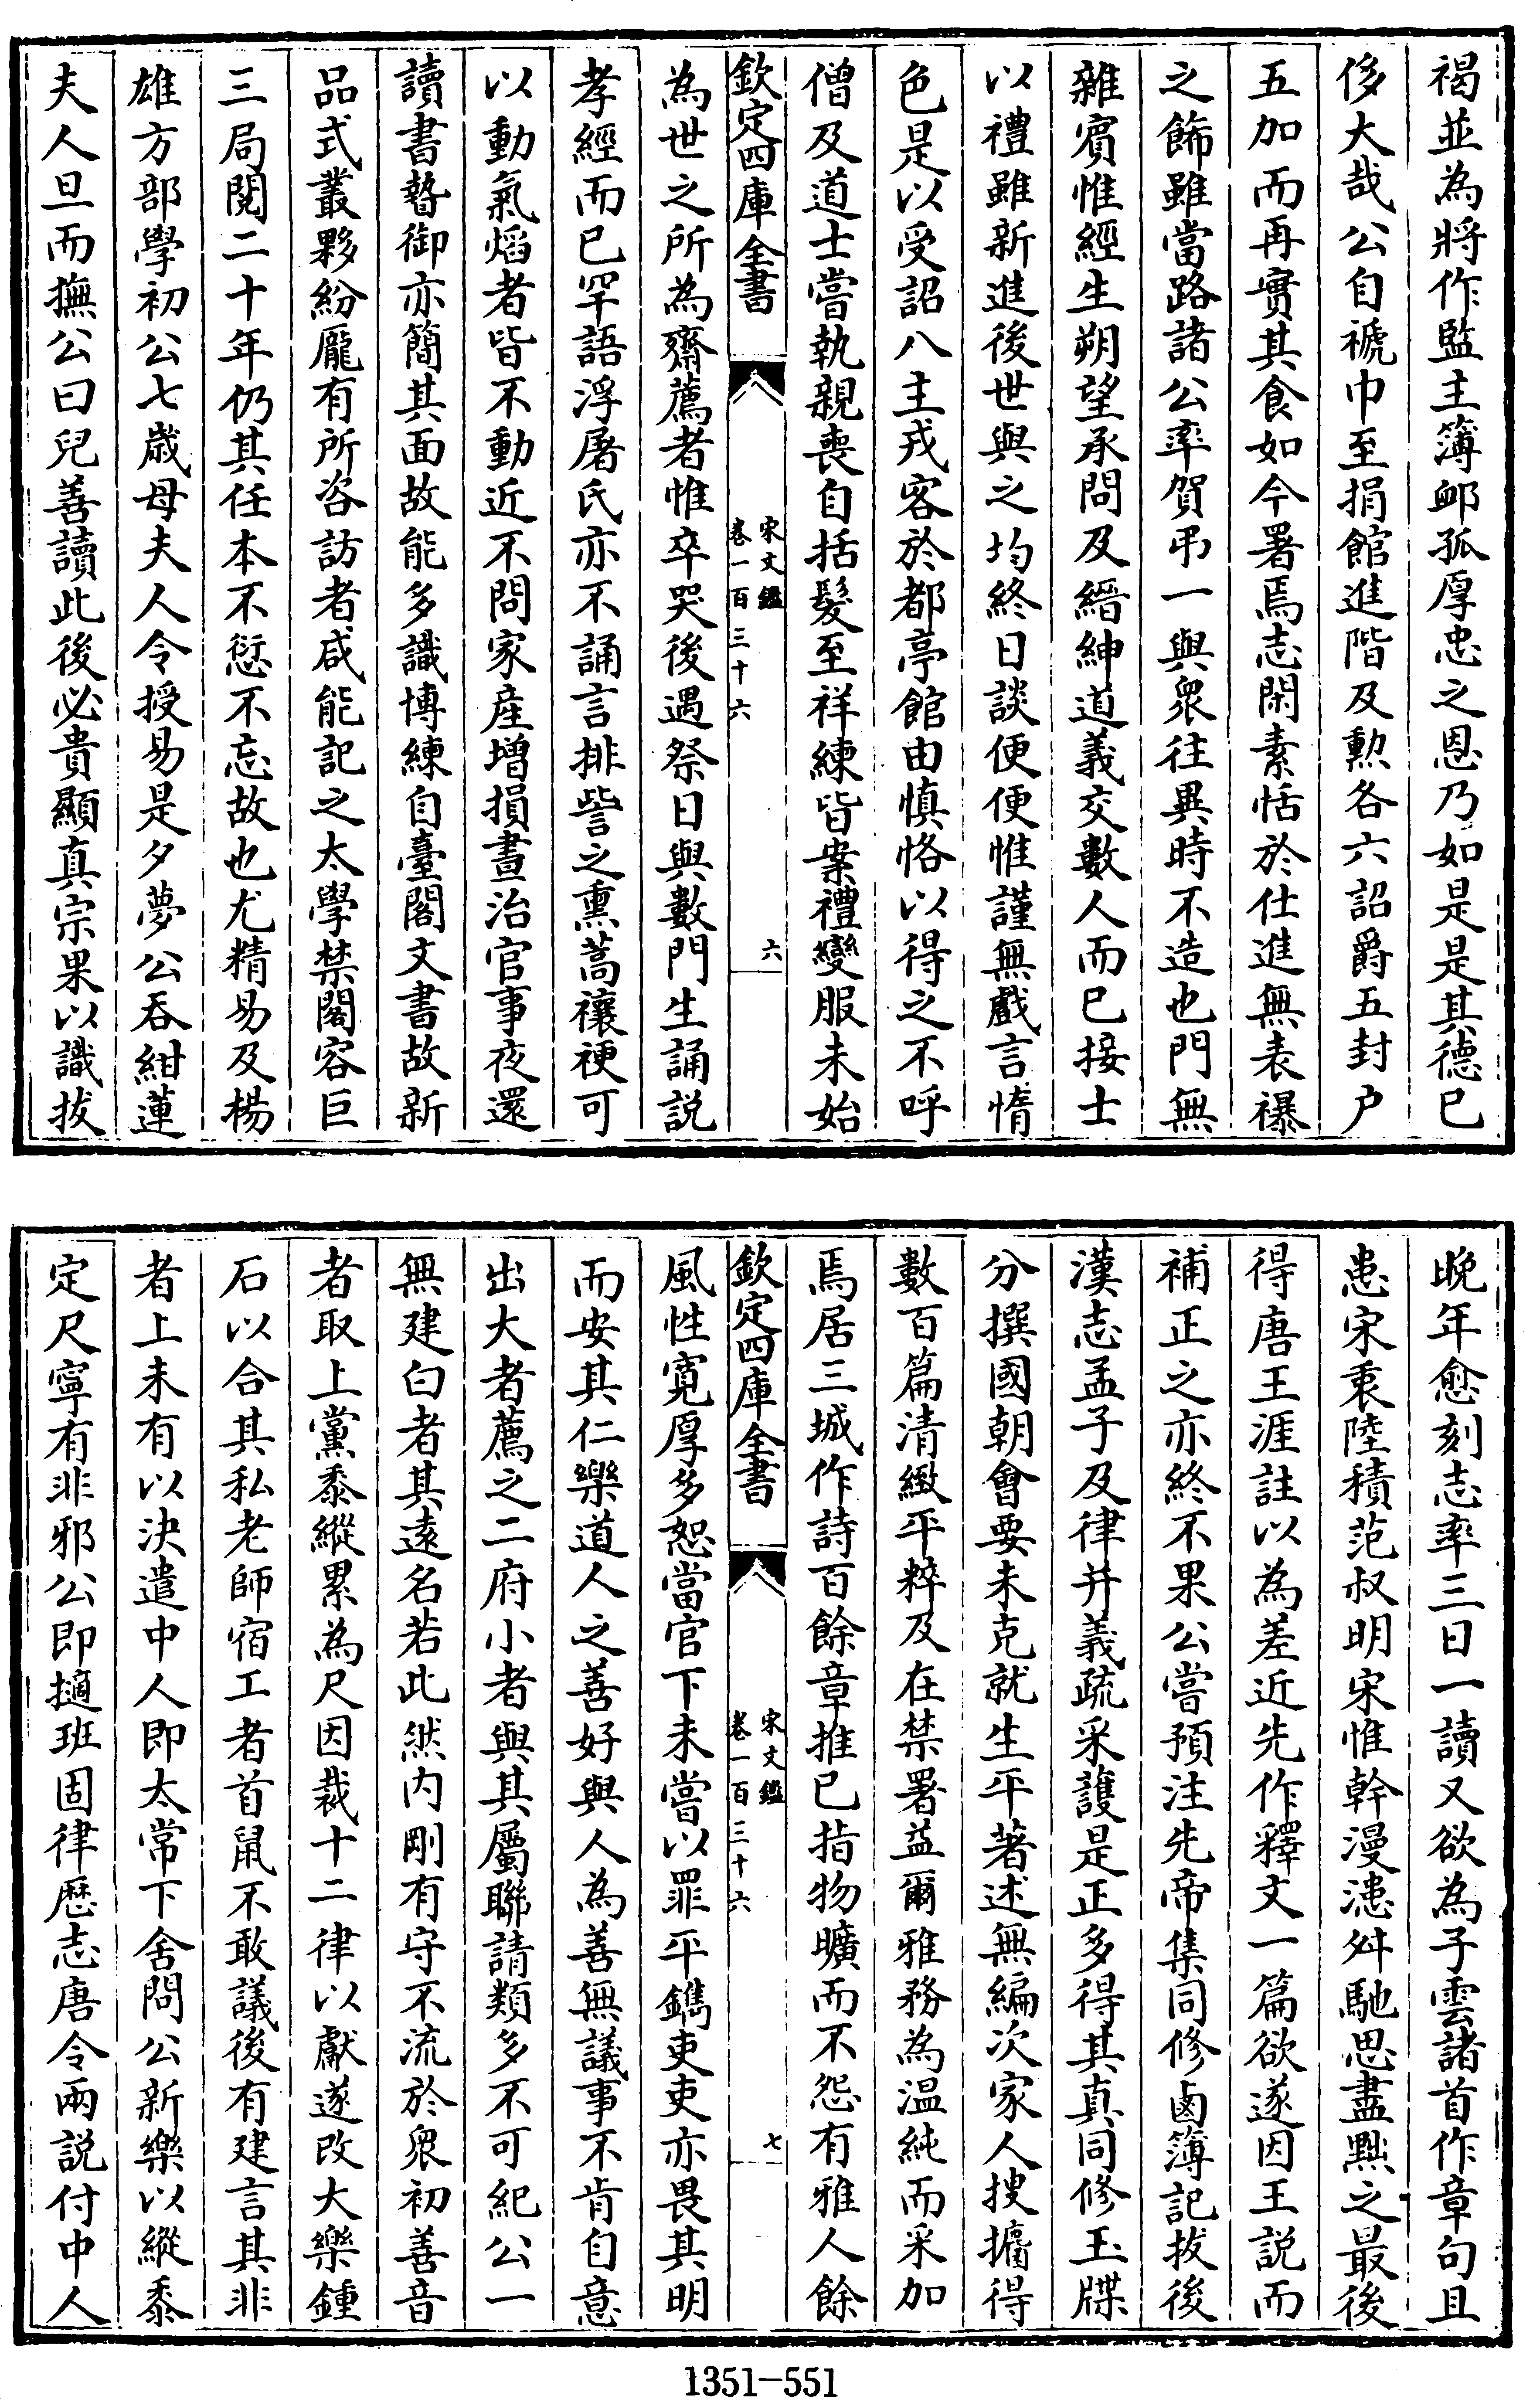 褐並為將作監主簿邺孤厚忠之恩乃如是是其德已
侈大哉公自褫巾至捐館進階及勲各六詔爵五封户
五加而再實其食如今署焉志閑素恬於仕進無表襮
之飾雖當路諸公率賀弔一與衆往異時不造也門無
雜賓惟經生朔望承問及縉紳道義交數人而已接士
以禮雖新進後世與之均終日談便便惟謹無戲言惰
色是以受詔八主戎客於都亭館由慎恪以得之不呼
僧及道士嘗執親喪自括髮至祥練皆案禮變服未始
欽定四庫全書
宋文鑑
卷一百三十六
六
為世之所為齋薦者惟卒哭後遇祭日與數門生誦說
孝經而已罕語浮屠氏亦不誦言排訾之熏蒿禳祓可
以動氣熖者皆不動近不問家産增損晝治官事夜還
讀書暬御亦簡其面故能多識博練自臺閣文書故新
品式叢夥紛龎有所咨訪者咸能記之太學禁閣容巨
三局閱二十年仍其任本不愆不忘故也尤精易及楊
雄方部學初公七歲母夫人令授易是夕夢公吞紺蓮
夫人旦而撫公曰兒善讀此後必貴顯真宗果以識拔
晚年愈刻志率三日一讀又欲為子雲諸首作章句且
患宋衷陸積范叔明宋惟幹漫漶舛馳思盡黜之最後
得唐王涯註以為差近先作釋文一篇欲遂因王說而
補正之亦終不果公嘗預注先帝集同修鹵簿記拔後
漢志孟子及律并義疏采頀是正多得其真同修玉牒
分撰國朝會要未克就生平著述無編次家人搜擕得
數百篇清緻平粹及在禁署益爾雅務為温純而采加
焉居三城作詩百餘章推已指物曠而不怨有雅人餘
欽定四庫全書
宋文鑑
卷一百三十六
七
風性寛厚多恕當官下未嘗以罪平鐫吏吏亦畏其明
而安其仁樂道人之善好與人為善無議事不肯自意
出大者薦之二府小者與其屬聯請類多不可紀公一
無建白者其遠名若此然内剛有守不流於衆初善音
者取上黨黍縱累為尺因裁十二律以獻遂改大樂鍾
石以合其私老師宿工者首鼠不敢議後有建言其非
者上未有以決遣中人即太常下舍問公新樂以縱黍
定尺寧有非邪公即擿班固律厯志唐令兩說付中人
1351-551